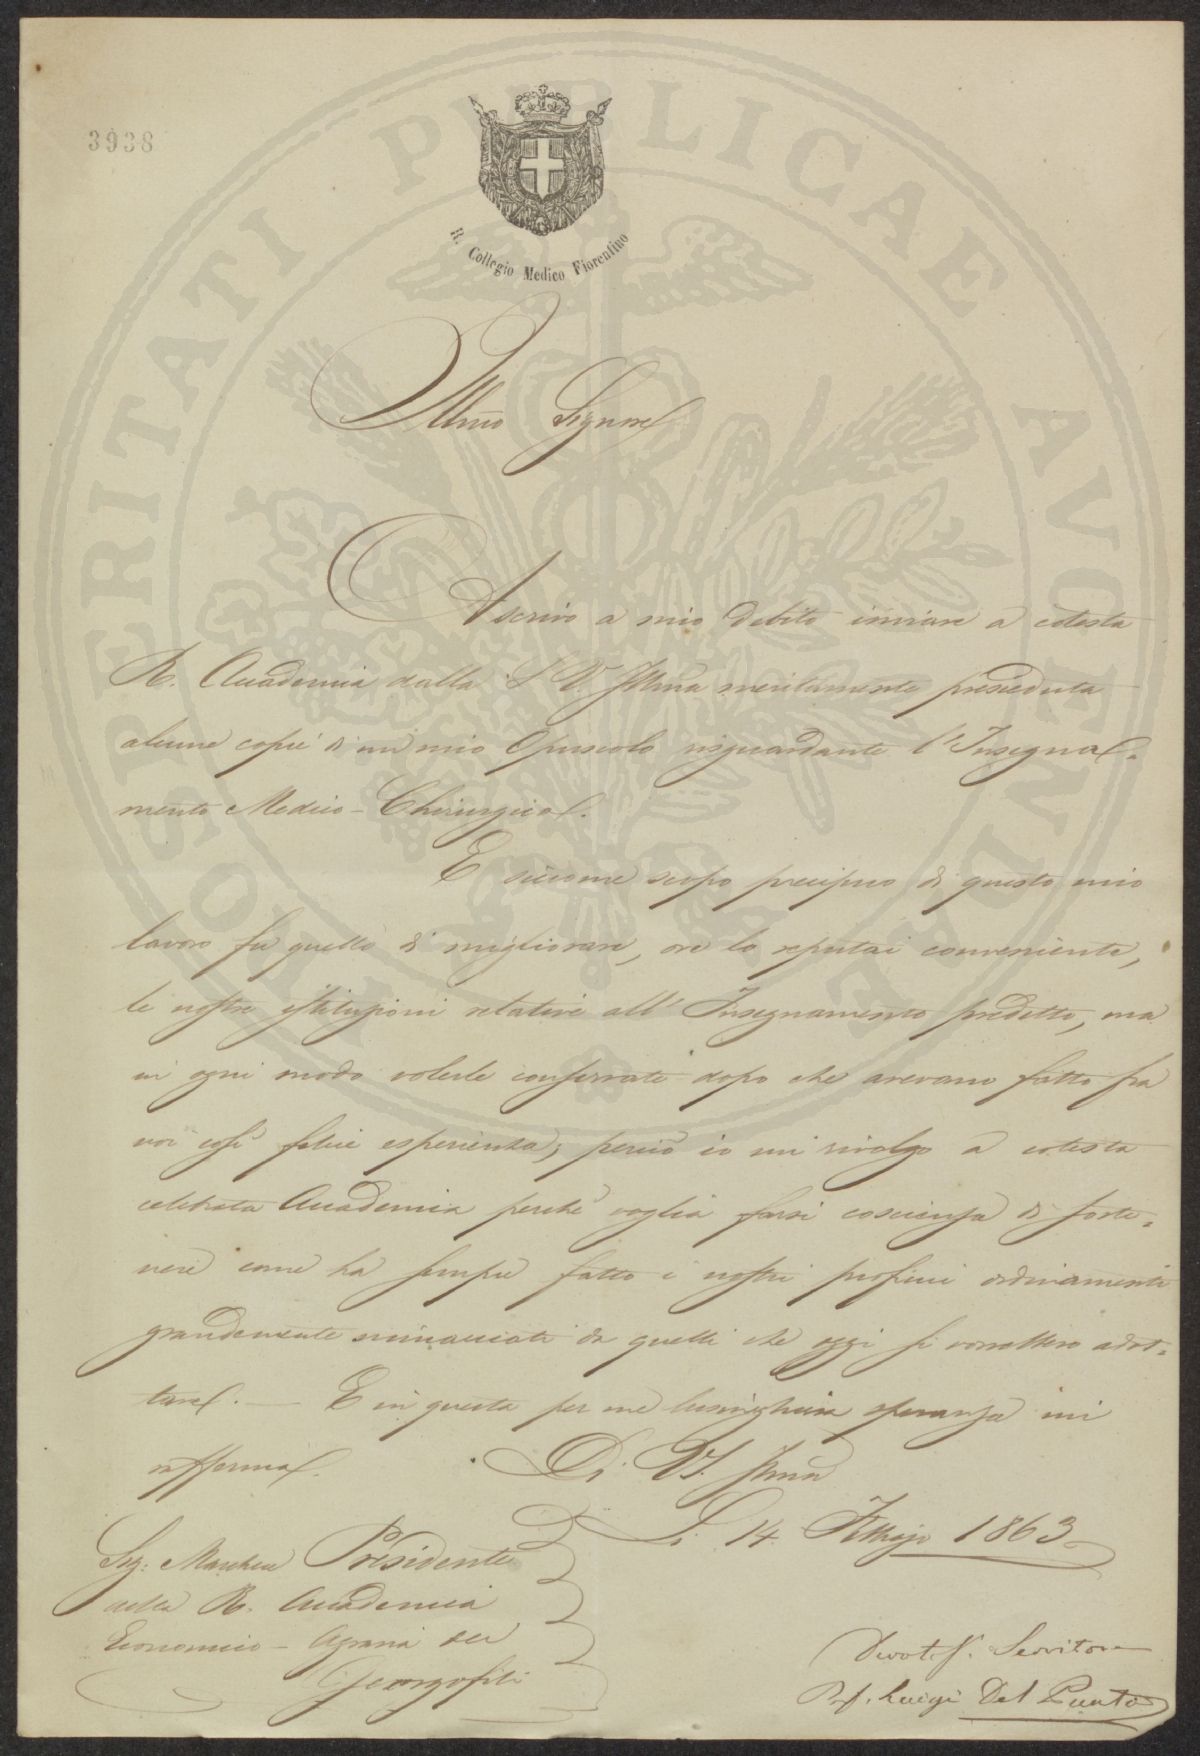 PROSPERITATI PUBLICAE AVGENDAE
3938
R. Collegio Medico Fiorentino
Illmo Signore
Ascrivo a mio debito inviare a cotesta
R. Accademia dalla S. V. Illma meritamente presieduta
alcune copie di un mio Opuscolo risguardante l'Insegna=
mento Medico-Chirurgico.
E siccome scopo precipuo di questo mio
lavoro fu quello di migliorare, ove lo reputai conveniente,
le nostre istituzioni relative all'Insegnamento predetto, ma
in ogni modo volerle conservate dopo che avevano fatto fra
noi così felice esperienza; perciò io mi rivolgo a cotesta
celebrata Accademia perchè voglia farsi coscienza di soste=
nere come ha sempre fatto i nostri proficui ordinamenti
grandemente minacciati da quelli che oggi si vorrebbero adot=
tare. — E in questa per me lusinghiera speranza mi
raffermo.
Di V. S. Illma
Li 14 1863
Sig: Marchese Presidente
della R. Accademia
Economico-Agraria dei
Georgofili
Devot. Servitore
Prof. Luigi Del Punta